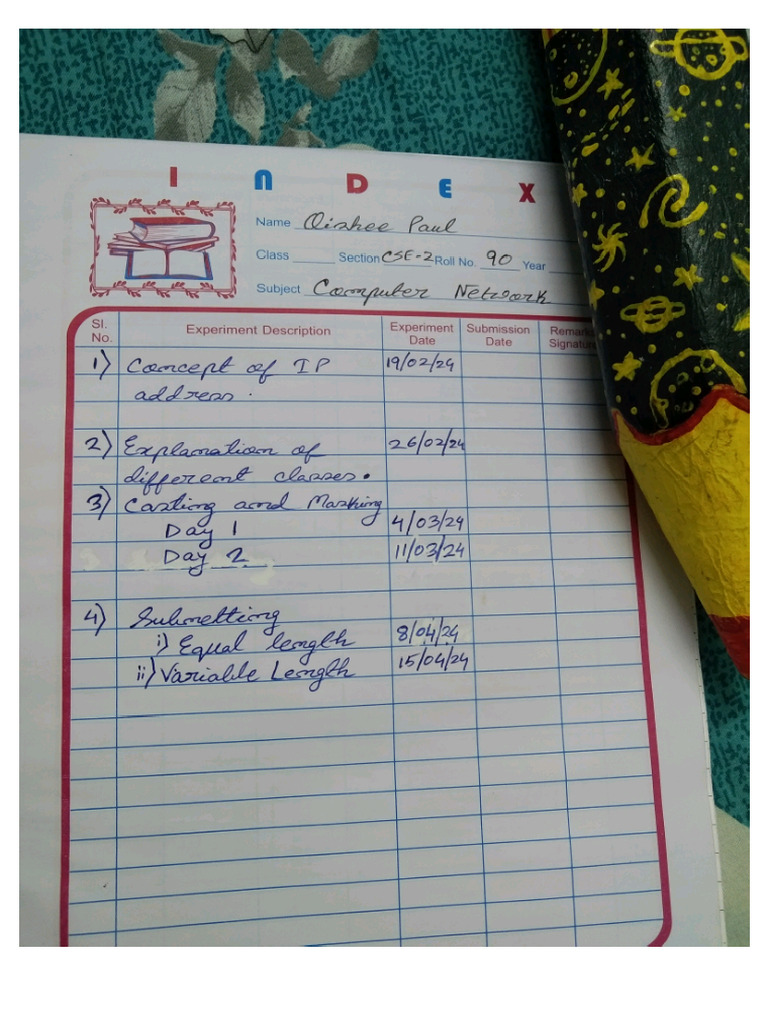 INDEX
Name Oishee Paul
Class Section CSE-2 Roll No. 90 Year
Subject Computer Network
Sl. No. Experiment Description Experiment Date Submission Date Remarks Signature
1) Concept of IP 19/02/24
address.
2) Explanation of 26/02/24
different classes.
3) Casting and Masking
Day 1 4/03/24
Day 2 11/03/24
4) Subnetting
i) Equal length 8/04/24
ii) Variable Length 15/04/24